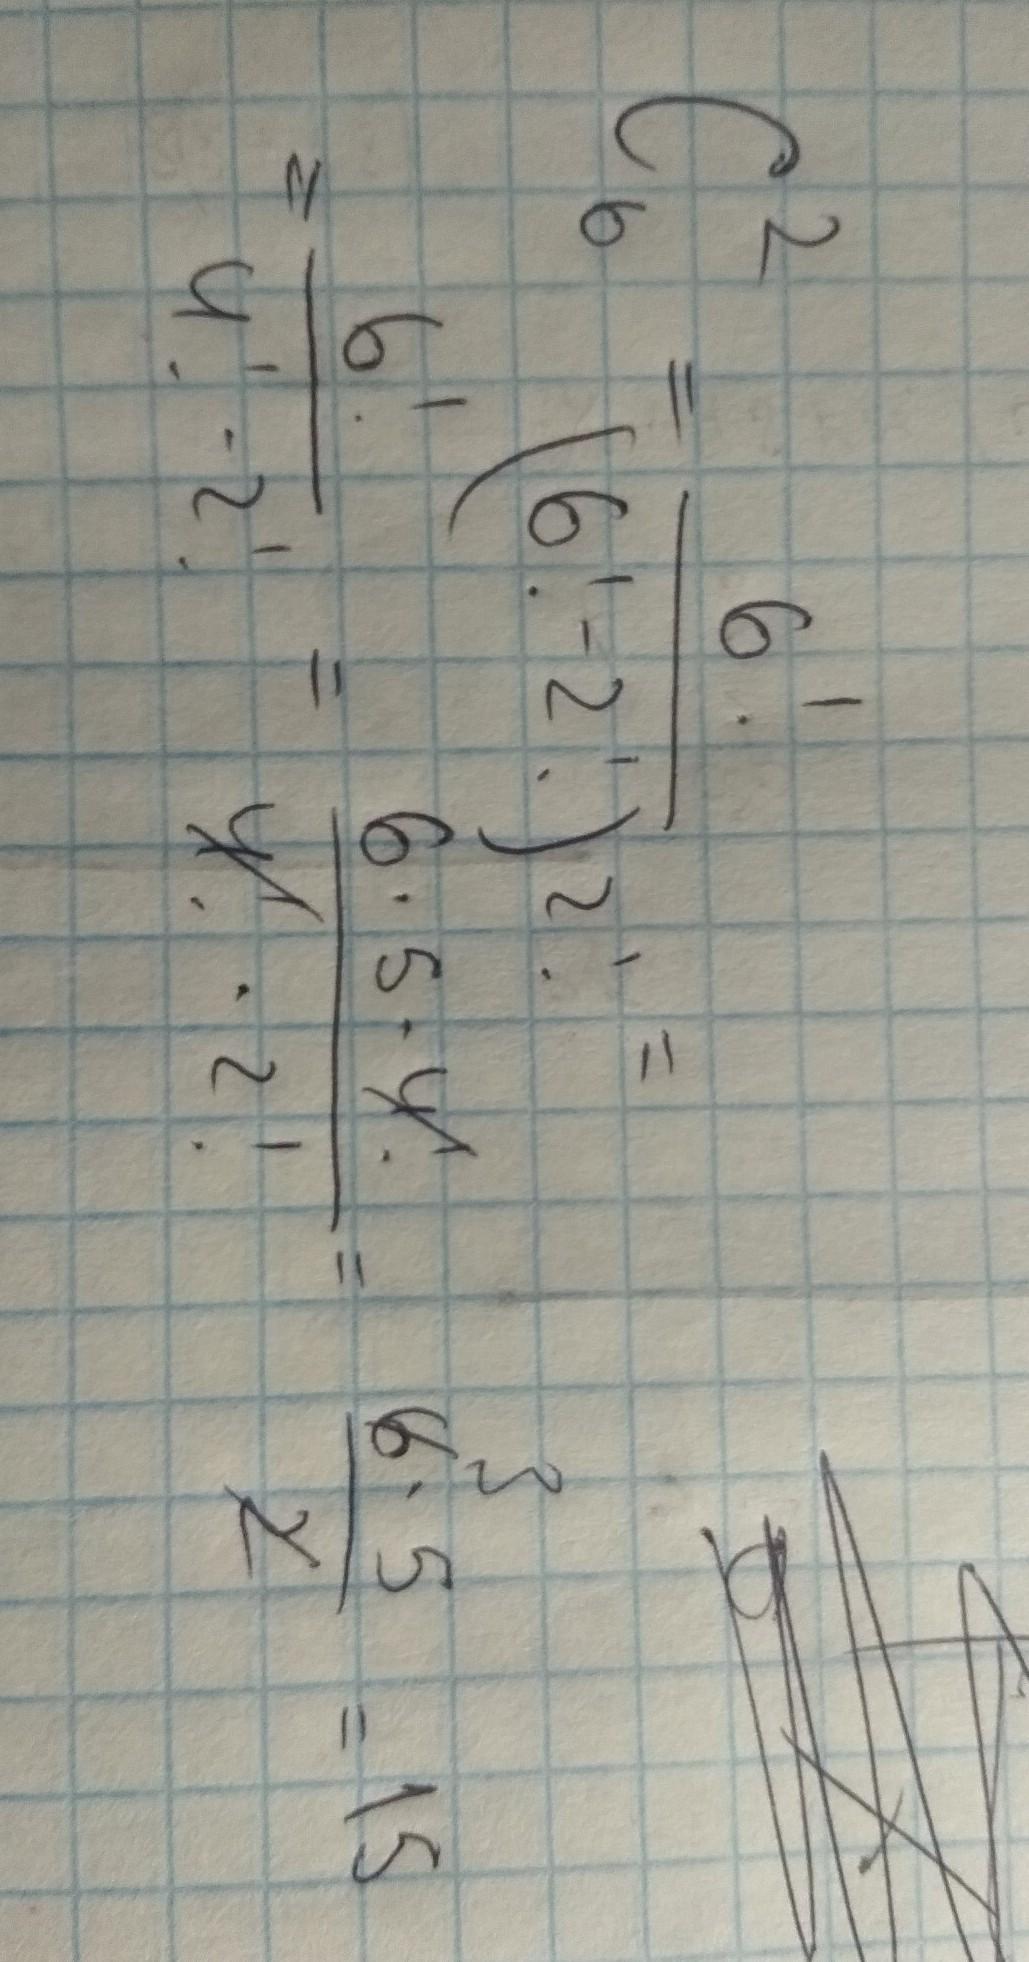 C₆² = 6! / (6! - 2!) 2! =
= 6! / 4! · 2! = 6 · 5 · 4! / 4! · 2! = 6³ · 5 / 2 = 15